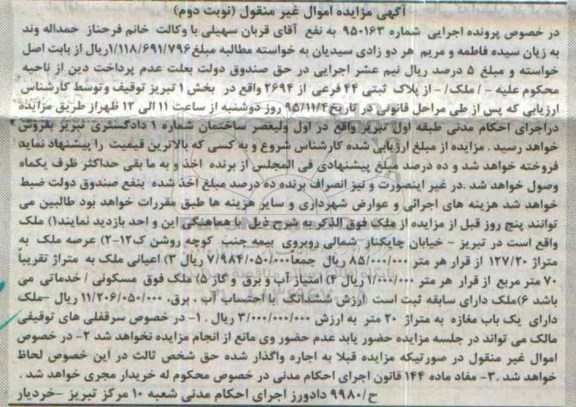 آگهی مزایده اموال غیر منقول (نوبت دوم)
در خصوص پرونده اجرایی شماره ۹۵۰۱۶۳ به نفع آقای قربان سهیلی با وکالت خانم فرحناز حمداله وند
به زیان سیده فاطمه و مریم هر دو زادی سیدیان به خواسته مطالبه مبلغ ۱/۱۱۸/۶۹۱/۷۹۶ریال از بابت اصل
خواسته و مبلغ ۵ درصد ریال نیم عشر اجرایی در حق صندوق دولت بعلت عدم پرداخت دین از ناحیه
محکوم علیه - / ملک/ - از پلاک ثبتی ۴۴ فرعی از ۲۶۹۴ واقع در بخش ۱ تبریز توقیف وتوسط کارشناس
ارزیابی که پس از طی مراحل قانونی در تاریخ ۹۵/۱۱/۴ روز دوشنبه از ساعت ۱۱ الی ۱۲ ظهراز طریق مزایده
دراجرای احکام مدنی طبقه اول تبریز واقع در اول ولیعصر ساختمان شماره ۱ دادگستری تبریز بفروش
خواهد رسید . مزایده از مبلغ ارزیابی شده کارشناس شروع و به کسی که بالاترین قیمیت را پیشنهاد نماید
فروخته خواهد شد و ده درصد مبلغ پیشنهادی فی المجلس از برنده اخذ و به ما بقی حداکثر ظرف یکماه
وصول خواهد شد .در غیر اینصورت و نیز انصراف برنده ده درصد مبلغ اخذ شده بنفع صندوق دولت ضبط
خواهد شد هزینه های اجرائی و عوارض شهرداری و سایر هزینه ها طبق مقررات خواهد بود طالبین می
توانند پنج روز قبل از مزایده از ملک فوق الذکر به شرح ذیل با هماهنگی این و احد بازدید نمایند۱) ملک
واقع است در تبریز - خیابان چایکنار شمالی روبروی بیمه جنب کوچه روشن ک۱۲-۲) عرصه ملک به
متراژ ۱۲۷/۲۰ از قرار هر متر ۸۵/۰۰۰/۰۰۰ ریال جمعا۷/۹۸۴/۰۵۰/۰۰۰ ریال ۳) اعیانی ملک به متراژ تقریباً
۷۰ متر مربع از قرار هر متر ۱/۰۰۰/۰۰۰ ریال ۴) امتیاز آب و برق و گاز ۵) ملک فوق مسکونی / خدماتی می
باشد ۶)ملک دارای سابقه ثبت است ارزش ششدانگ با احتساب آب ، برق، ۱۱/۲۰۶/۰۵۰/۰۰۰ ریال -ملک
دارای یک باب مغازه به متراژ ۲۰ متر به ارزش ۳/۰۰۰/۰۰۰/۰۰۰ ریال . ۱- در خصوص سرقفلی های توقیفی
مالک می تواند در جلسه مزایده حضور یابد عدم حضور وی مانع از انجام مزایده نخواهد شد ۲- در خصوص
اموال غیر منقول در صورتیکه مزایده قبلا به اجاره واگذار شده حق شخص ثالث در این خصوص لحاظ
خواهد شد .۳- مفاد ماده ۱۴۴ قانون اجرای احکام مدنی در خصوص محکوم له خریدار مجری خواهد شد .
ح/۹۹۸۰ دادورز اجرای احکام مدنی شعبه ۱۰ مرکز تبریز -خردیار